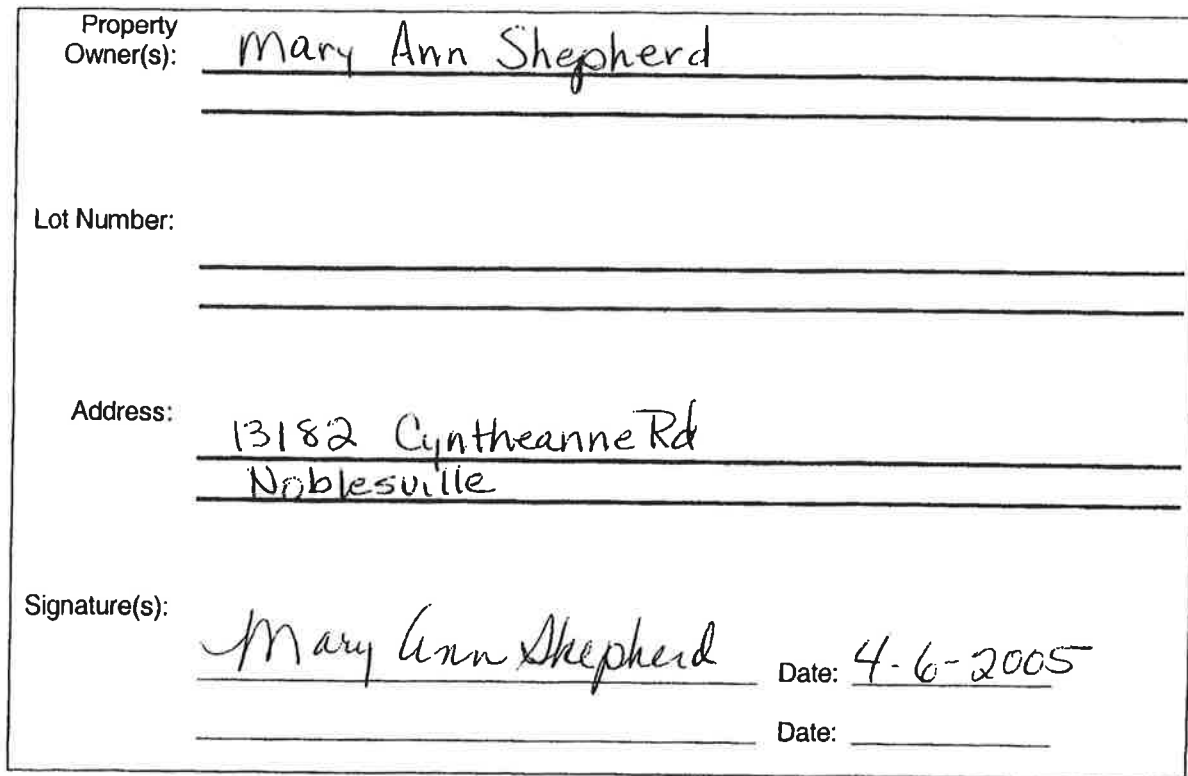 Property
Owner(s): Mary Ann Shepherd
Lot Number:
Address: 13182 Cyntheanne Rd
Noblesville
Signature(s): Mary Ann Shepherd Date: 4-6-2005
Date: